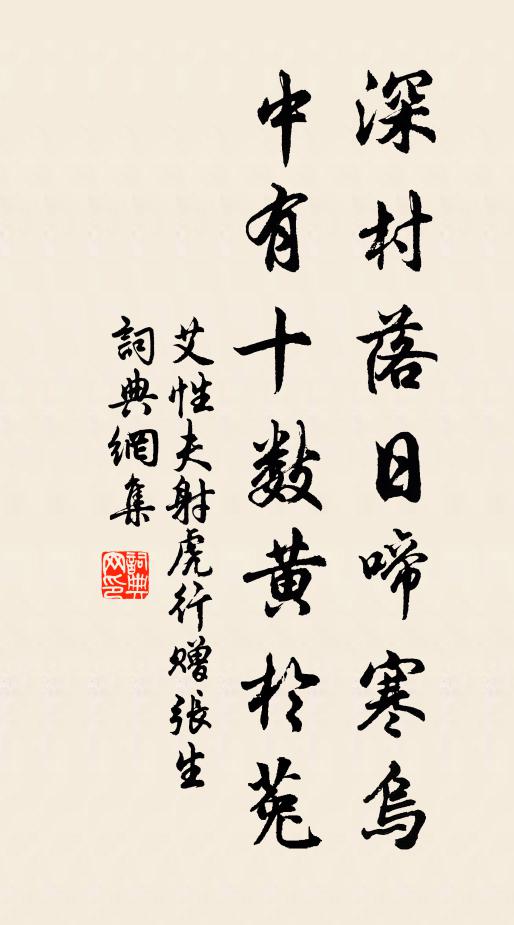 深村落日啼寒烏
中有十數黄於菟
艾性夫射虎行贈張生
詞典網集
詞典網印